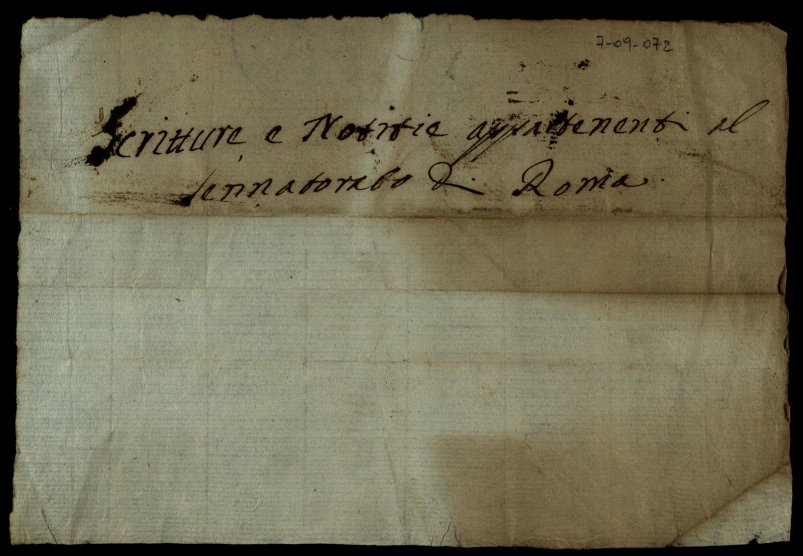 7-09-072
Scritture e Notitie appartenenti al
Sennatorato di Roma.